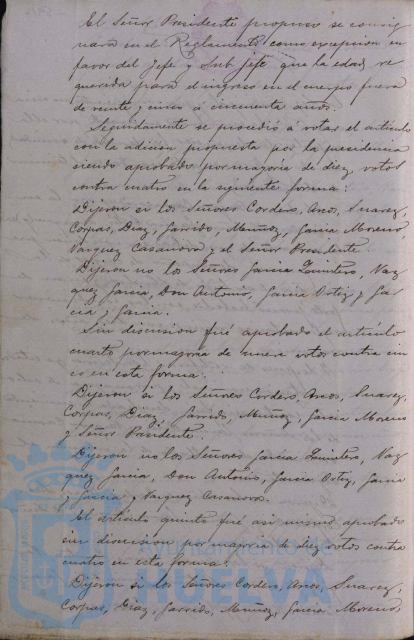 El Señor Presidente propuso se consig
nara en el Reglamento como excepcion en
favor del Jefe y Sub Jefe que la edad re
querida para el ingreso en el cuerpo fuera
de veinte y cinco á cincuenta años.
Seguidamente se procedió á votar el artículo
con la adicion propuesta por la presidencia
siendo aprobado por mayoría de diez votos
contra cuatro en la siguiente forma:
Dijeron si los Señores Cordero, Arcos, Suarez,
Corpas, Diaz, Garrido, Muñoz, Garcia Moreno,
Vazquez Casanova y el Señor Presidente.
Dijeron no los Señores Garcia Quintero, Vaz
quez Garcia, Don Antonio, Garcia Ortiz y Gar
cia y Garcia.
Sin discusion fué aprobado el artículo
cuarto por mayoría de nueve votos contra cin
co en esta forma:
Dijeron si los Señores Cordero, Arcos, Suarez,
Corpas, Diaz, Garrido, Muñoz, Garcia Moreno
y Señor Presidente.
Dijeron no los Señores Garcia Quintero, Vaz
quez Garcia, Don Antonio, Garcia Ortiz, Garcia
y Garcia y Vazquez Casanova.
El artículo quinto fué asi mismo aprobado
sin discusion por mayoría de diez votos contra
cuatro en esta forma:
Dijeron si los Señores Cordero, Arcos, Suarez,
Corpas, Diaz, Garrido, Muñoz, Garcia Moreno,
Ayuntamiento de
HUELVA